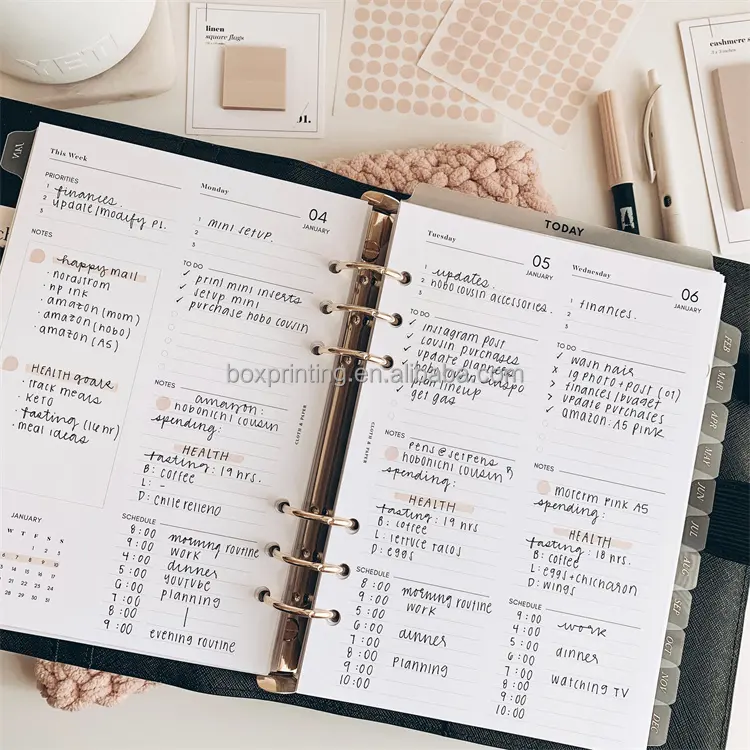 YETI
linen
square flags
01.
cashmere
JAN
This Week
PRIORITIES
1 finances.
2 update/modify P1.
3
NOTES
happy mail
· nordstrom
· np ink
· amazon (mom)
· amazon (hobo)
· amazon (A5)
HEALTH goals
· track meals
· keto
· fasting (16 hr)
· meal ideas
JANUARY
W T F S S
1 2 3
6 7 8 9 10
Monday
04
JANUARY
1 mini setup.
2
3
TO DO
✓ print mini inserts
✓ setup mini
✓ purchase hobo cousin
NOTES
amazon:
hobonichi cousin
spending:
HEALTH
fasting: 19 hrs.
B: coffee
L: -
D: chile relleno
SCHEDULE
8:00 morning routine
9:00 work
4:00 dinner
5:00 youtube
6:00 planning
7:00
8:00
9:00 evening routine
CLOTH & PAPER
TODAY
Tuesday
05
JANUARY
1 updates.
2 hobo cousin accessories.
3
TO DO
✓ instagram post
✓ cousin purchases
gel lineup
get gas
NOTES
pens @ jetpens &
hobonichi (cousin)
spending:
HEALTH
fasting: 19 hrs
B: coffee
L: lettuce tacos
D: eggs
SCHEDULE
8:00 morning routine
9:00 work
4:00
5:00 dinner
6:00
7:00 planning
8:00
9:00
10:00
CLOTH & PAPER
Wednesday
06
JANUARY
1 finances.
2
3
TO DO
✓ wash hair
x ig photo + post (07)
> finances/budget
> update purchases
✓ amazon: A5 pink
NOTES
moterm pink A5
spending:
HEALTH
fasting: 18 hrs.
B: coffee
L: eggs + chicharon
D: wings
SCHEDULE
9:00 work
4:00
5:00 dinner
6:00
7:00 watching TV
8:00
9:00
10:00
FEB
MAR
APR
MAY
JUN
JUL
AUG
SEP
OCT
NOV
DEC
boxprinting.en.alibaba.com